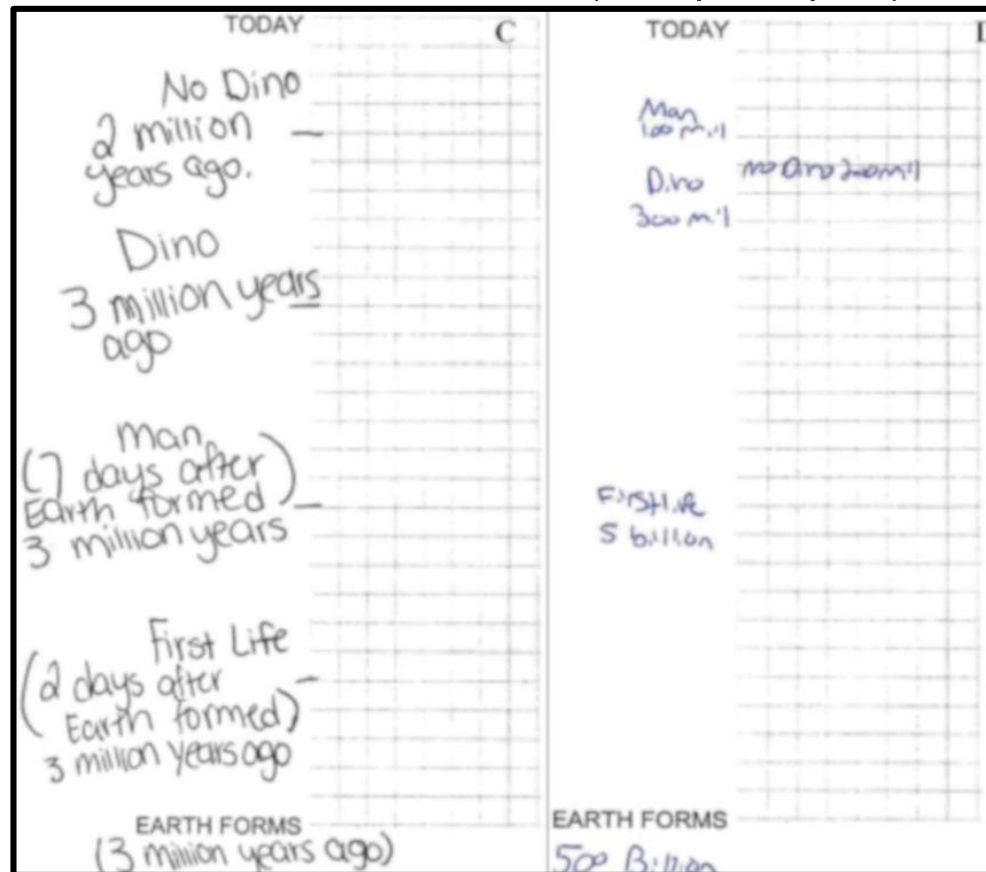 TODAY
C
No Dino
2 million
years ago.
Dino
3 million years
ago
Man
(7 days after
Earth formed)
3 million years
First Life
(2 days after
Earth formed)
3 million years ago
EARTH FORMS
(3 million years ago)
TODAY
Man
100 mil
Dino
no Dino 200 mil
300 mil
First life
5 billion
EARTH FORMS
500 Billion